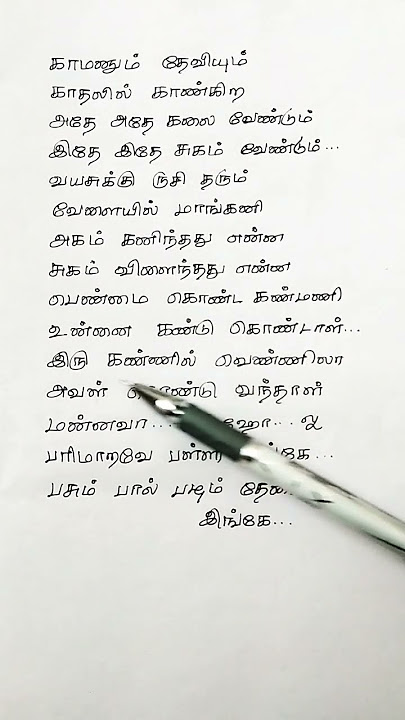 காமனும் தேவியும்
காதலில் காண்கிற
அதே அதே கலை வேண்டும்
இதே இதே சுகம் வேண்டும்...
வயசுக்கு ருசி தரும்
வேளையில் மாங்கனி
அகம் கனிந்தது என்ன
சுகம் விளைந்தது என்ன
பெண்மை கொண்ட கண்மணி
உன்னை கண்டு கொண்டாள்...
இரு கண்ணில் வெண்ணிலா
அவள் வந்தாள்
மன்னவா...
பரிமாறவே
பசும் பால்
இங்கே...